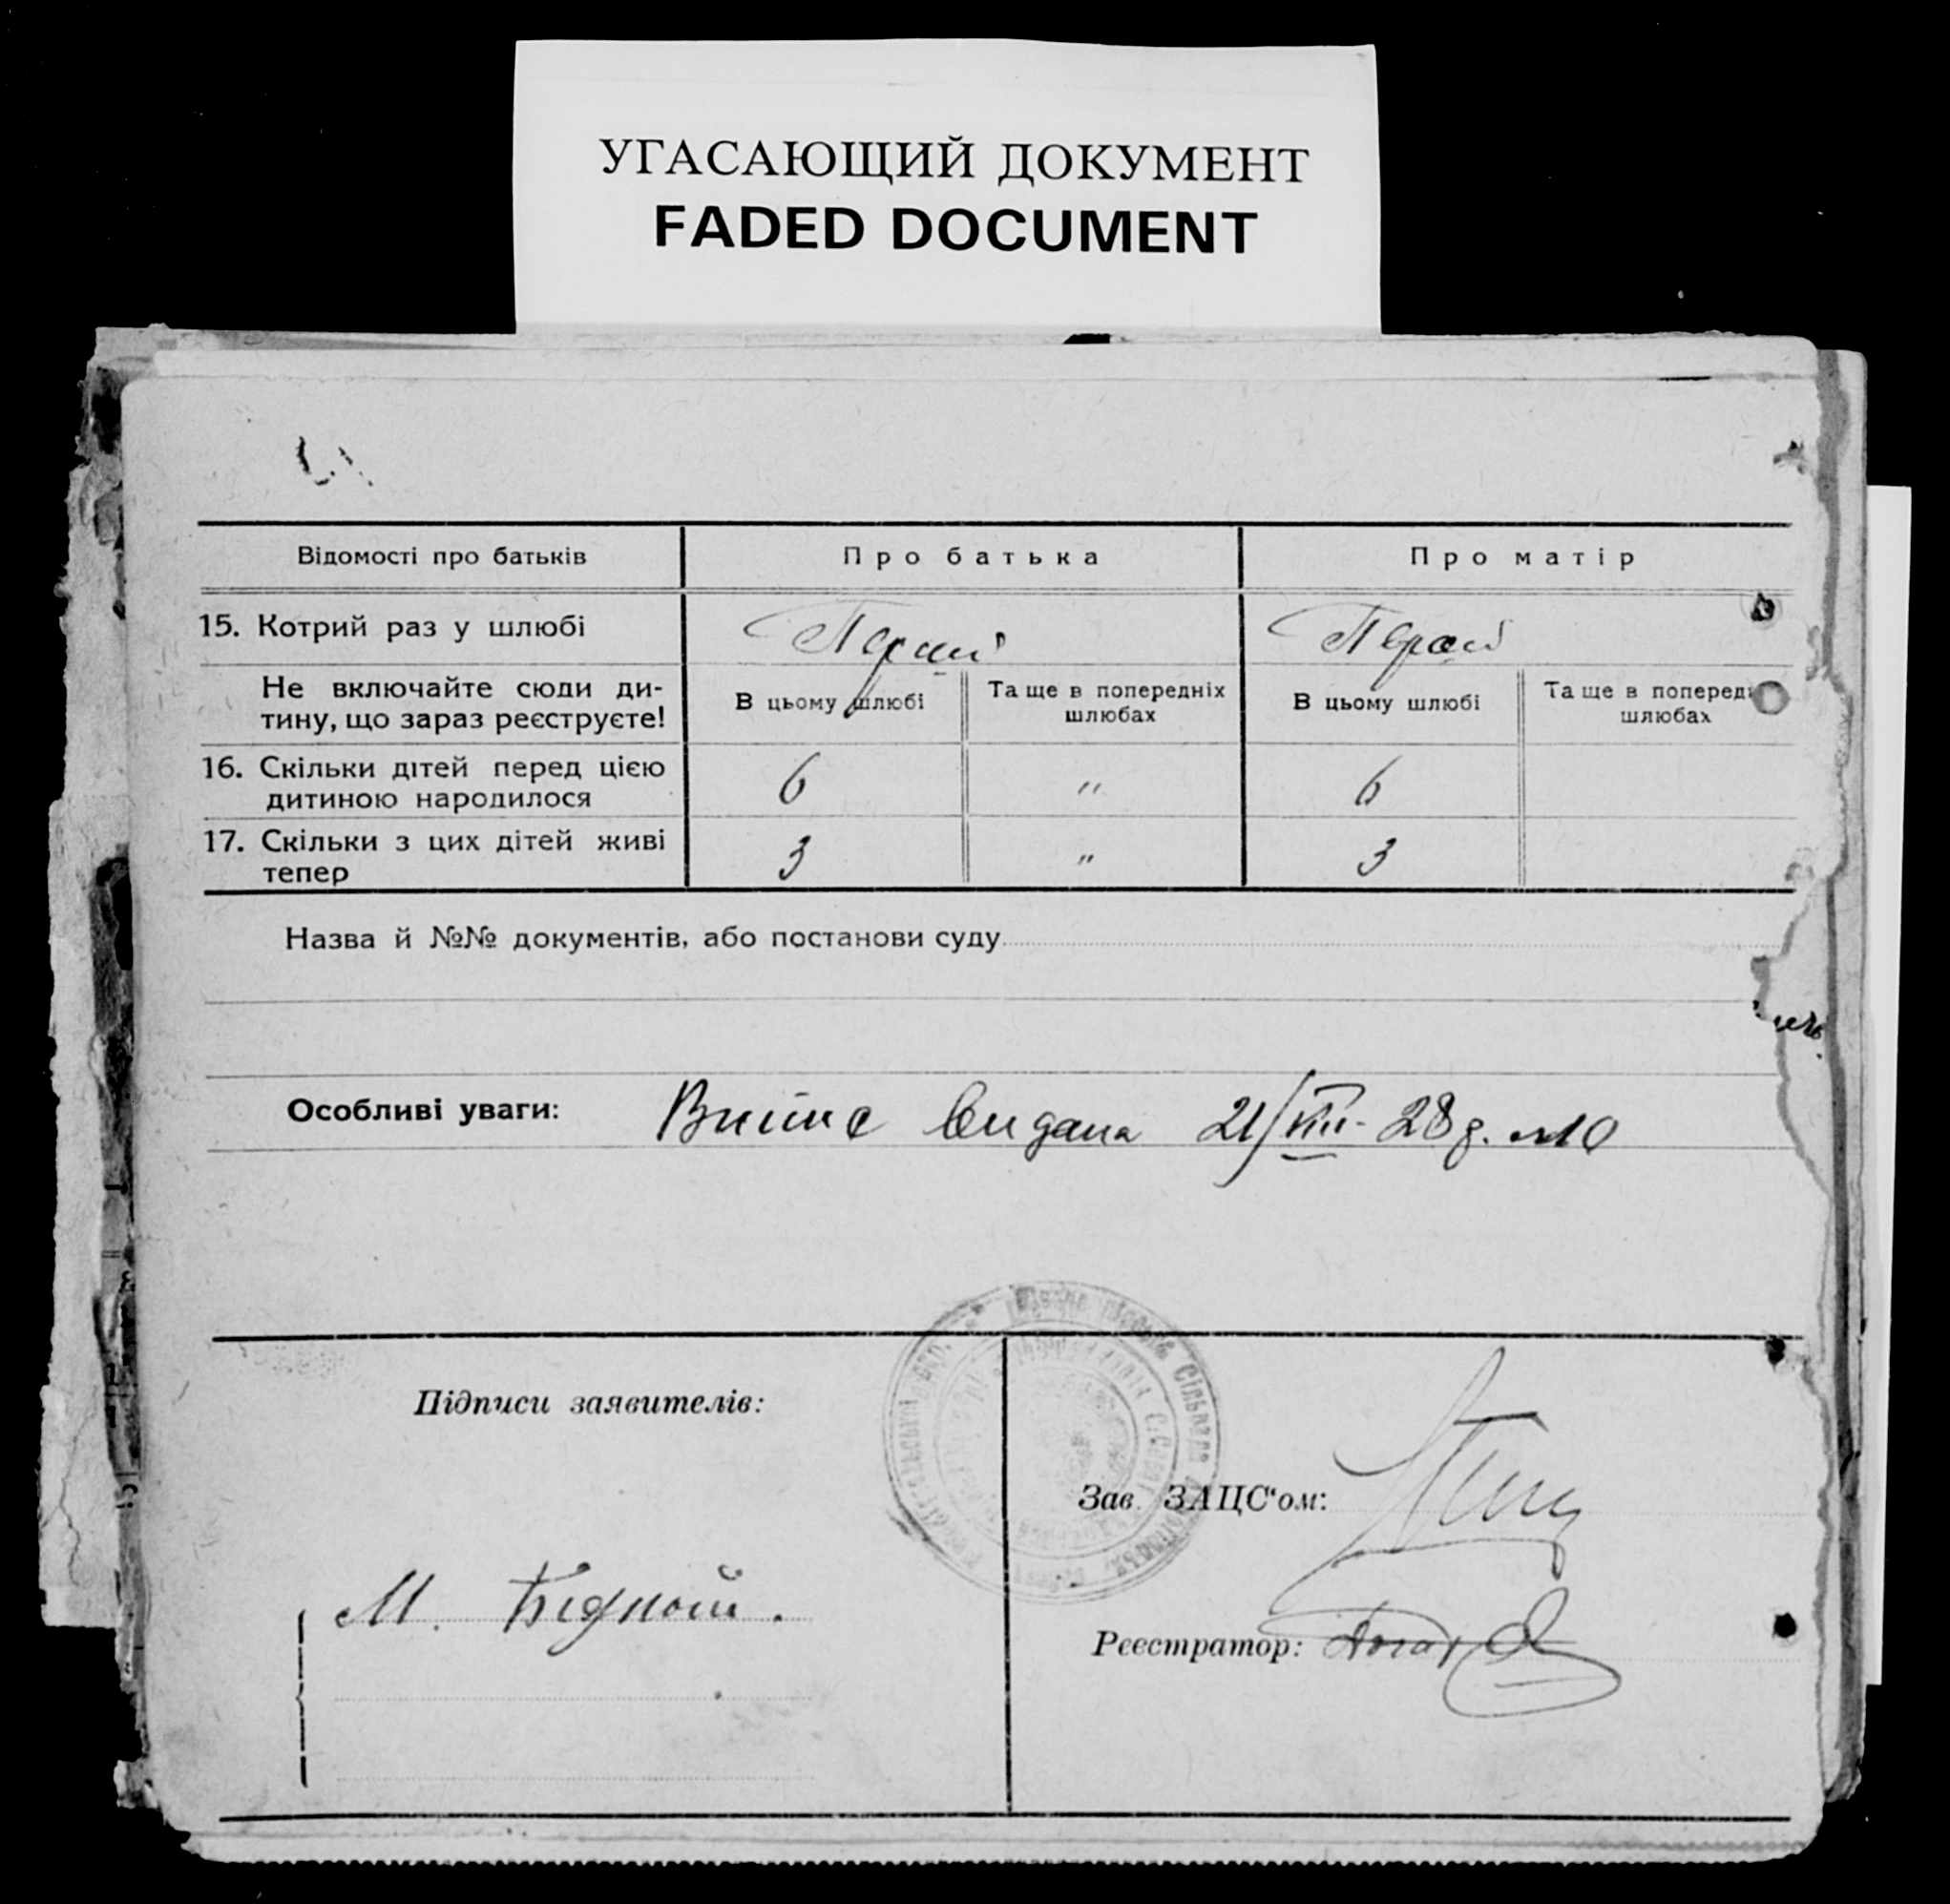 УГАСАЮЩИЙ ДОКУМЕНТ
FADED DOCUMENT
Відомості про батьків Про батька Про матір
15. Котрий раз у шлюбі Перший Перший
Не включайте сюди ди-
тину, що зараз реєструєте!
В цьому шлюбі
Та ще в попередніх
шлюбах
В цьому шлюбі
Та ще в поперед
шлюбах
16. Скільки дітей перед цією
дитиною народилося
6 " 6
17. Скільки з цих дітей живі
тепер
3 " 3
Назва й №№ документів, або постанови суду
Особливі уваги: видана 21/VIII-28р. №10
Підписи заявителів:
Зав. ЗАЦС'ом:
М. Бедной.
Реєстратор: